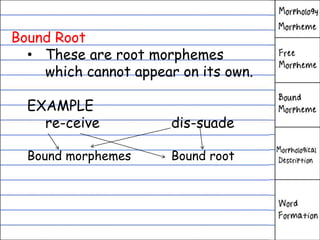 Bound Root
• These are root morphemes
which cannot appear on its own.
EXAMPLE
re-ceive dis-suade
Bound morphemes Bound root
Morphology
Morpheme
Free
Morpheme
Bound
Morpheme
Morphological
Description
Word
Formation